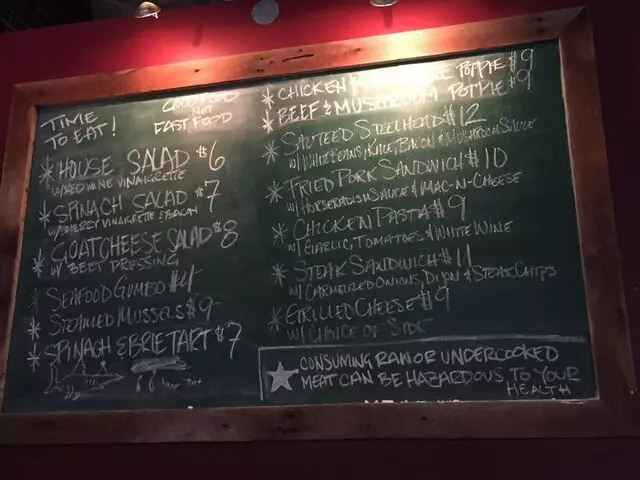 TIME
TO EAT!
GOOD FOOD
NOT
FAST FOOD
* HOUSE SALAD $6
W/ RED WINE VINAIGRETTE
* SPINACH SALAD $7
W/ SHERRY VINAIGRETTE & BACON
* GOAT CHEESE SALAD $8
W/ BEET DRESSING
* SEAFOOD GUMBO $4
* STEAMED MUSSELS $9
* SPINACH & BRIE TART $7
* CHICKEN POPPIE $9
* BEEF & MUSHROOM POTPIE $9
* SAUTEED STEELHEAD $12
W/ WHITE BEANS, KALE, BACON & MUSHROOM SAUCE
* FRIED PORK SANDWICH $10
W/ HORSERADISH SAUCE & MAC-N-CHEESE
* CHICKEN PASTA $9
W/ GARLIC, TOMATOES & WHITE WINE
* STEAK SANDWICH $11
W/ CARMELIZED ONIONS, DIJON & STEAK CHIPS
* GRILLED CHEESE $9
W/ CHOICE OF SIDE
★ CONSUMING RAW OR UNDERCOOKED
MEAT CAN BE HAZARDOUS TO YOUR
HEALTH